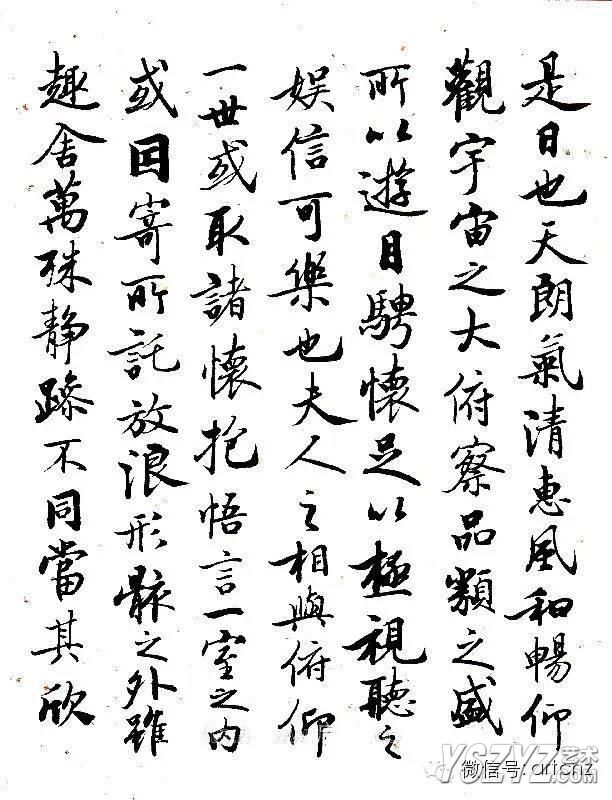 是日也天朗氣清惠風和暢仰
觀宇宙之大俯察品類之盛
所以遊目騁懷足以極視聽之
娱信可樂也夫人之相與俯仰
一世或取諸懷抱悟言一室之内
或因寄所託放浪形骸之外雖
趣舍萬殊静躁不同當其欣
YSZYZ艺术
微信号: artcnz